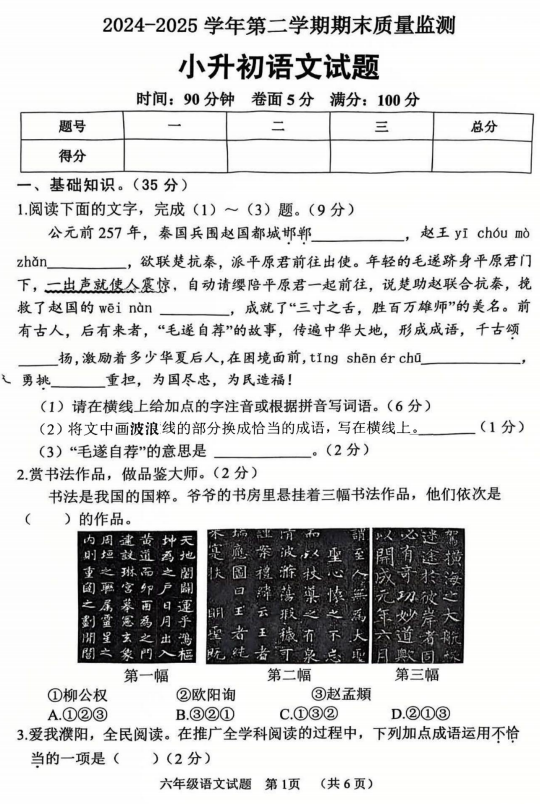 2024-2025 学年第二学期期末质量监测
小升初语文试题
时间：90 分钟 卷面 5 分 满分：100 分
题号 一 二 三 总分
得分
一、基础知识。（35 分）
1.阅读下面的文字，完成（1）～（3）题。（9 分）
公元前 257 年，秦国兵围赵国都城邯郸__________，赵王 yī chóu mò
zhǎn__________，欲联楚抗秦，派平原君前往出使。年轻的毛遂跻身平原君门
下，一出声就使人震惊，自动请缨陪平原君一起前往，说楚助赵联合抗秦，挽
救了赵国的 wēi nàn __________，成就了“三寸之舌，胜百万雄师”的美名。前
有古人，后有来者，“毛遂自荐”的故事，传遍中华大地，形成成语，千古颂
______扬，激励着多少华夏后人，在困境面前，tǐng shēn ér chū__________，
勇挑______重担，为国尽忠，为民造福！
（1）请在横线上给加点的字注音或根据拼音写词语。（6 分）
（2）将文中画波浪线的部分换成恰当的成语，写在横线上。________（1 分）
（3）“毛遂自荐”的意思是 __________。（2 分）
2.赏书法作品，做品鉴大师。（2 分）
书法是我国的国粹。爷爷的书房里悬挂着三幅书法作品，他们依次是
（ ）的作品。
第一幅 第二幅 第三幅
①柳公权 ②欧阳询 ③赵孟頫
A.①②③ B.③②① C.①③② D.②①③
3.爱我濮阳，全民阅读。在推广全学科阅读的过程中，下列加点成语运用不恰
当的一项是（ ）（2 分）
六年级语文试题 第 1页 （共 6 页）